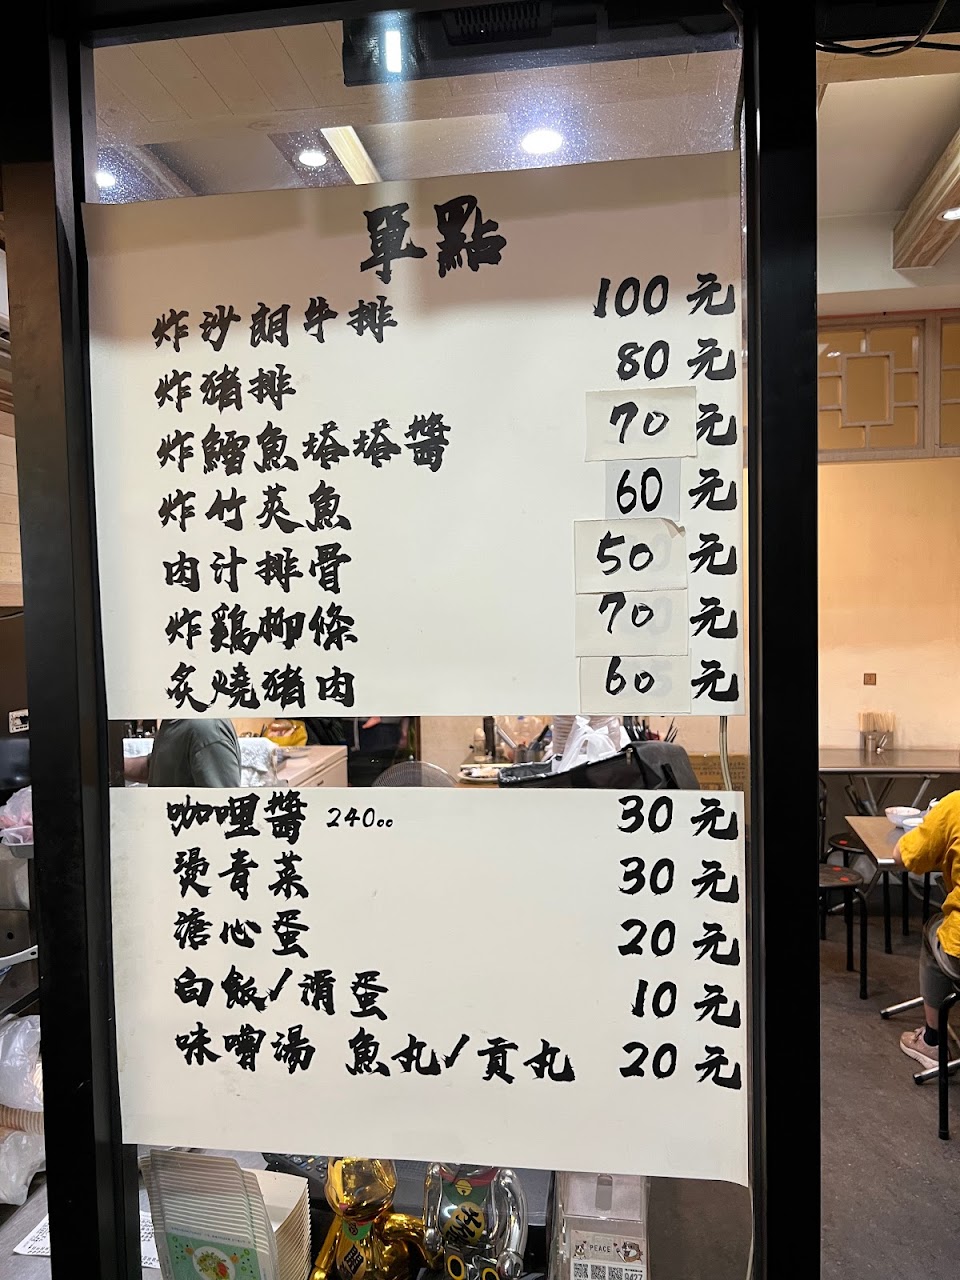 單點
炸沙朗牛排 100元
炸豬排 80元
炸鱈魚塔塔醬 70元
炸竹莢魚 60元
肉汁排骨 50元
炸鷄柳條 70元
炙燒豬肉 60元
咖哩醬 240cc 30元
燙青菜 30元
溏心蛋 20元
白飯/滑蛋 10元
味噌湯 魚丸/貢丸 20元
PEACE
9427